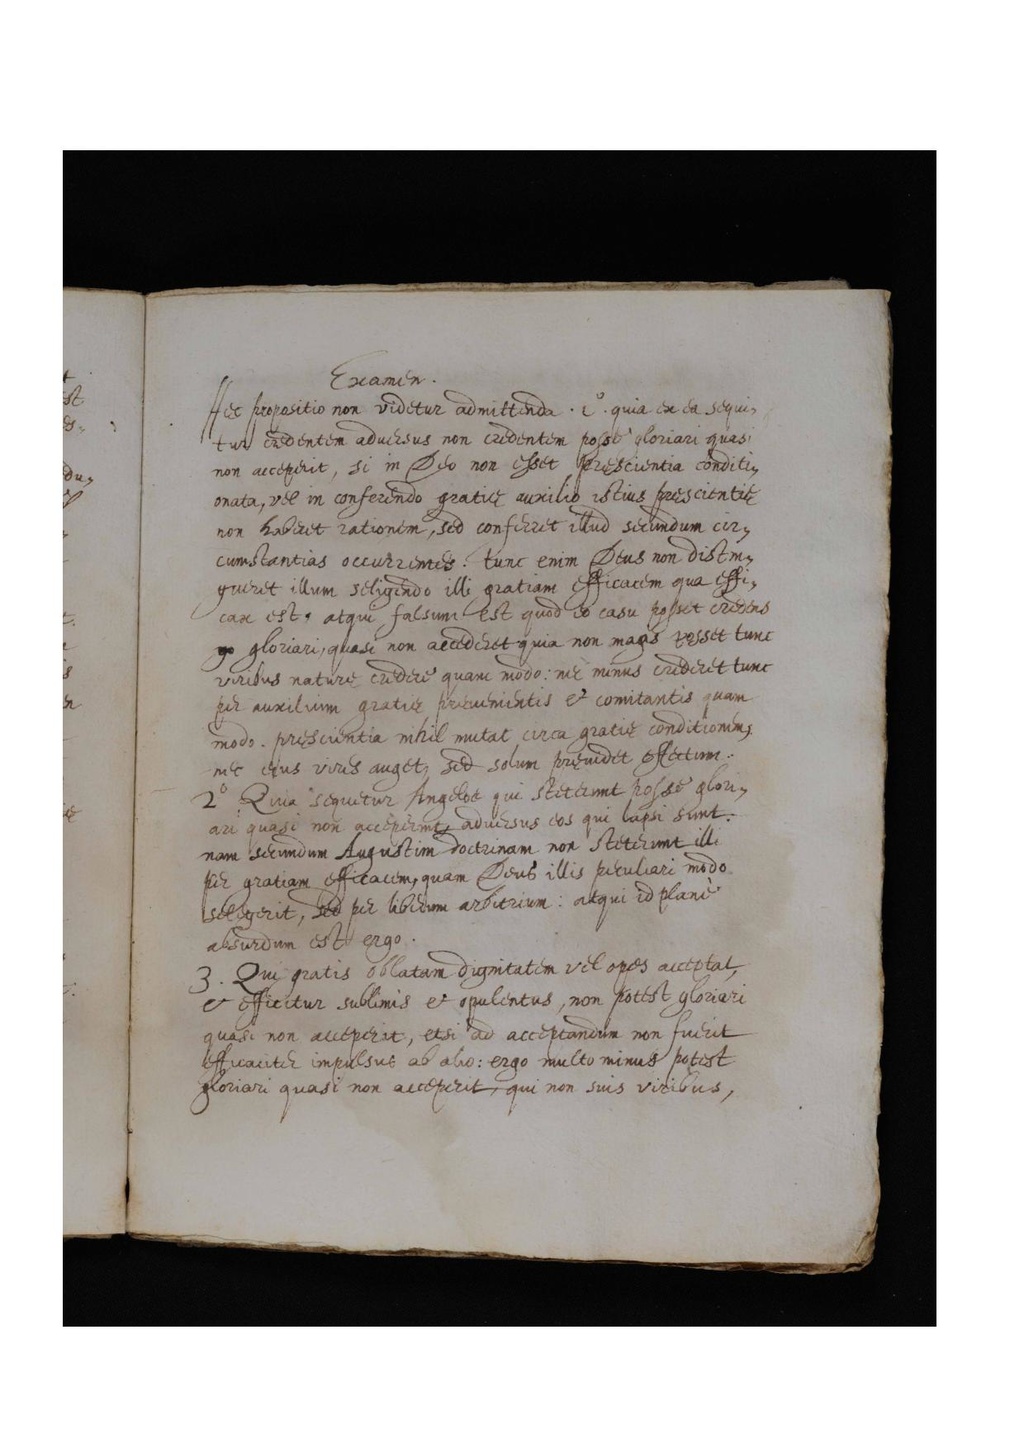 Examen.
Hec propositio non videtur admittenda. 1º. quia ex ea sequi,
tur credentem adversus non credentem posse gloriari quasi
non acceperit, si in Deo non esset prescientia conditi,
onata, vel in conferendo gratie auxilio istius prescientie
non haberet rationem, sed conferret illud secundum cir,
cumstantias occurrentes. tunc enim Deus non distin,
gueret illum seligendo illi gratiam efficacem qua effi,
cax est, atqui falsum est quod eo casu posset credens
gloriari, quasi non accederet quia non magis posset tunc
viribus nature credere quam modo: nec minus crederet tunc
per auxilium gratie prevenientis et comitantis quam
modo. prescientia nihil mutat circa gratie conditionem,
nec eius vires auget, sed solum previdet effectum.
2º Quia sequetur Angelos qui steterunt posse glori,
ari quasi non acceperint, adversus eos qui lapsi sunt.
nam secundum Augustini doctrinam non steterunt illi
per gratiam efficacem, quam Deus illis peculiari modo
selegerit, sed per liberum arbitrium: atqui id planè
absurdum est ergo.
3. Qui gratis oblatam dignitatem vel opes acceptat,
et efficitur sublimis et opulentus, non potest gloriari
quasi non acceperit, etsi ad acceptandum non fuerit
efficaciter impulsus ab alio: ergo multo minus potest
gloriari quasi non acceperit, qui non suis viribus,